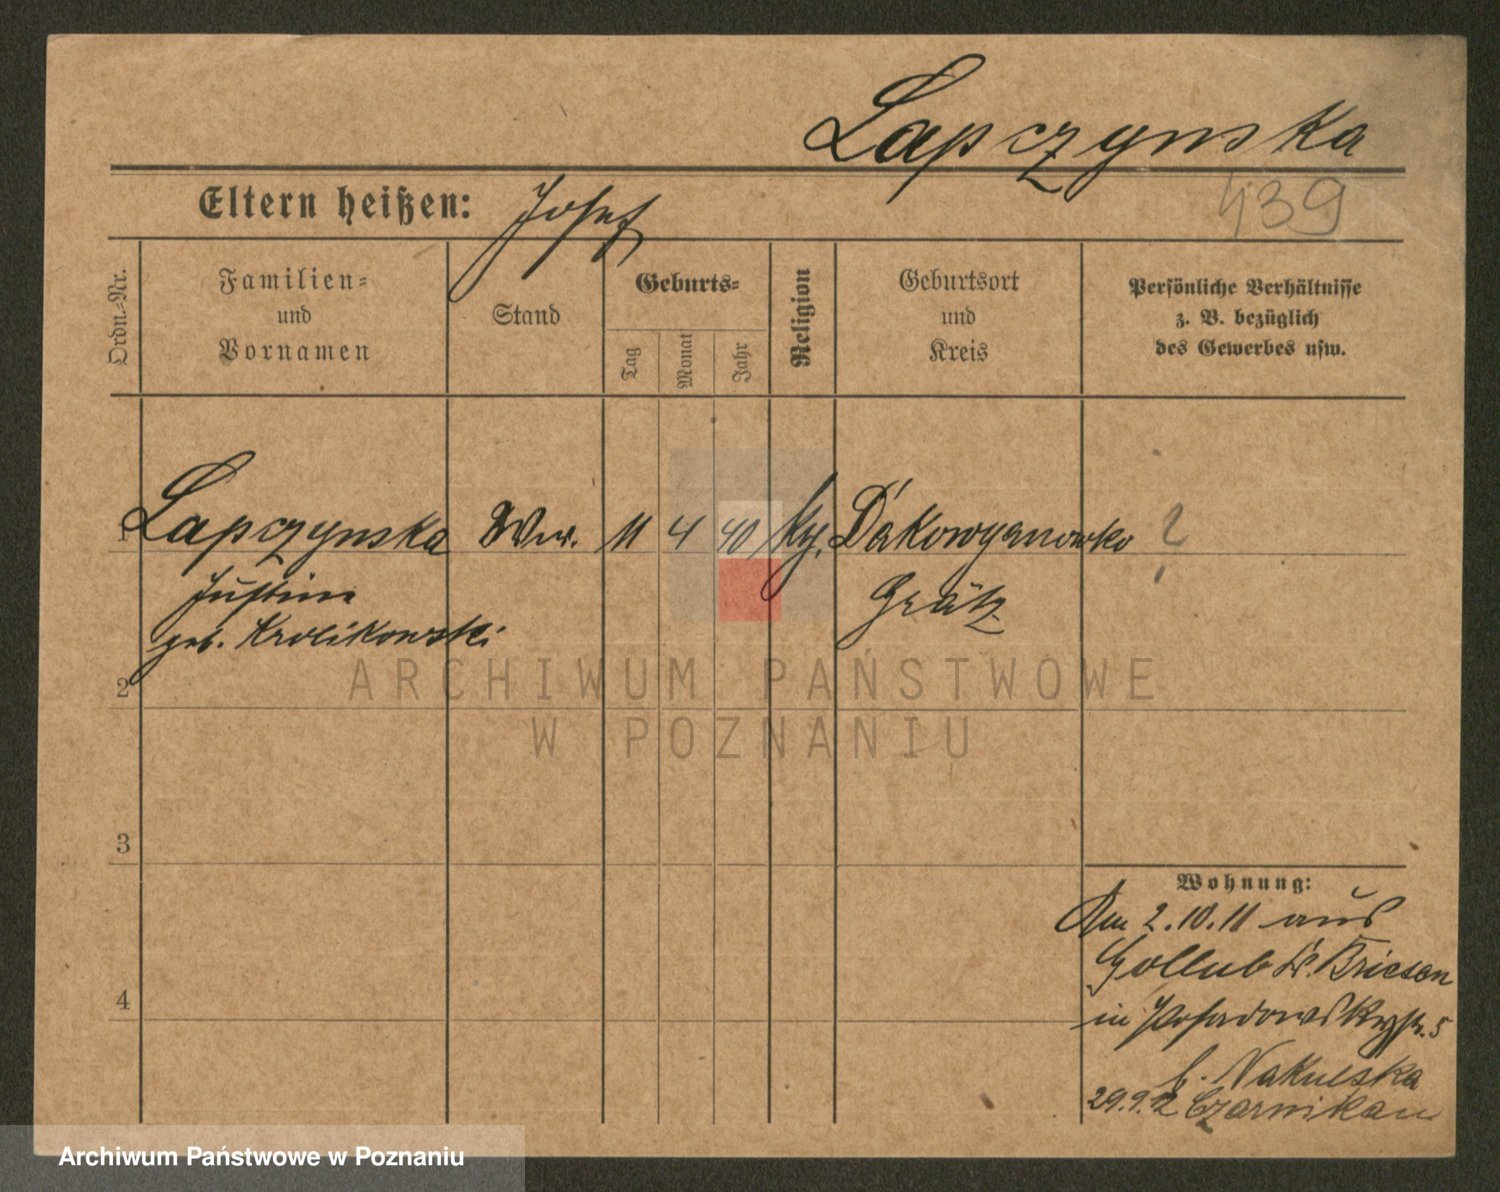 Lapczynska
439
Eltern heißen: Josef
Ordn.-Nr.
Familien-
und
Vornamen
Stand
Geburts-
Tag
Monat
Jahr
Religion
Geburtsort
und
Kreis
Persönliche Verhältnisse
z. B. bezüglich
des Gewerbes usw.
1 Lapczynska Ww. 11 4 40 Dakowy ?
Justine Grätz
geb. Krolikowski
2
ARCHIWUM PAŃSTWOWE
W POZNANIU
3
Wohnung:
Am 2.10.11 aus
Gollub Kr. Briesen
4
in Posadowskystr. 5
b. Nakulska
29.9.12 Czarnikau
Archiwum Państwowe w Poznaniu